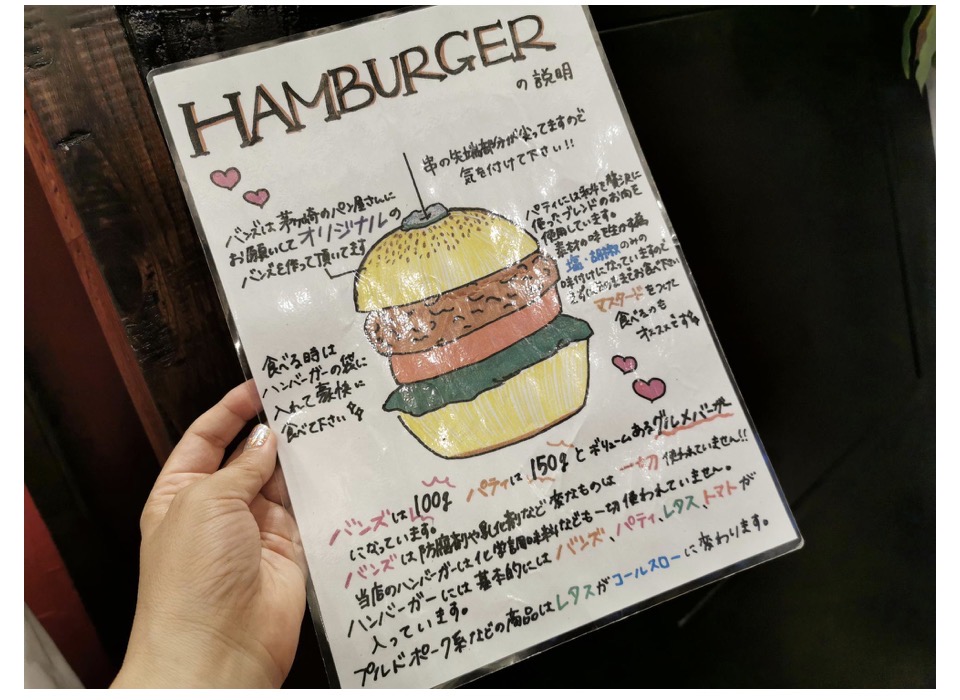 HAMBURGER
の説明
串の先端部分が尖ってますので
気を付けて下さい!!
バンズは茅ヶ崎のパン屋さんに
お願いしてオリジナルの
バンズを作って頂いてます
パティには和牛を贅沢に
使ったブレンドのお肉を
使用しています。
素材の味を生かす為
塩・胡椒のみの
味付けになっていますので
そのままお召べ下さい
マスタードをつけて
食べるのも
オススメです
食べる時は
ハンバーガーの袋に
入れて豪快に
食べて下さい
バンズは100g パティは150gとボリュームあるグルメバーガー
になっています。
バンズは防腐剤や乳化剤など変なものは一切使われていません!!
当店のハンバーガーは化学調味料なども一切使われていません。
ハンバーガーには基本的にはバンズ、パティ、レタス、トマトが
入っています。
プルドポーク系などの商品はレタスがコールスローに変わります。